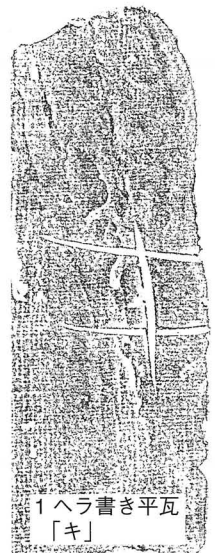 キ
1 ヘラ書き平瓦
「キ」